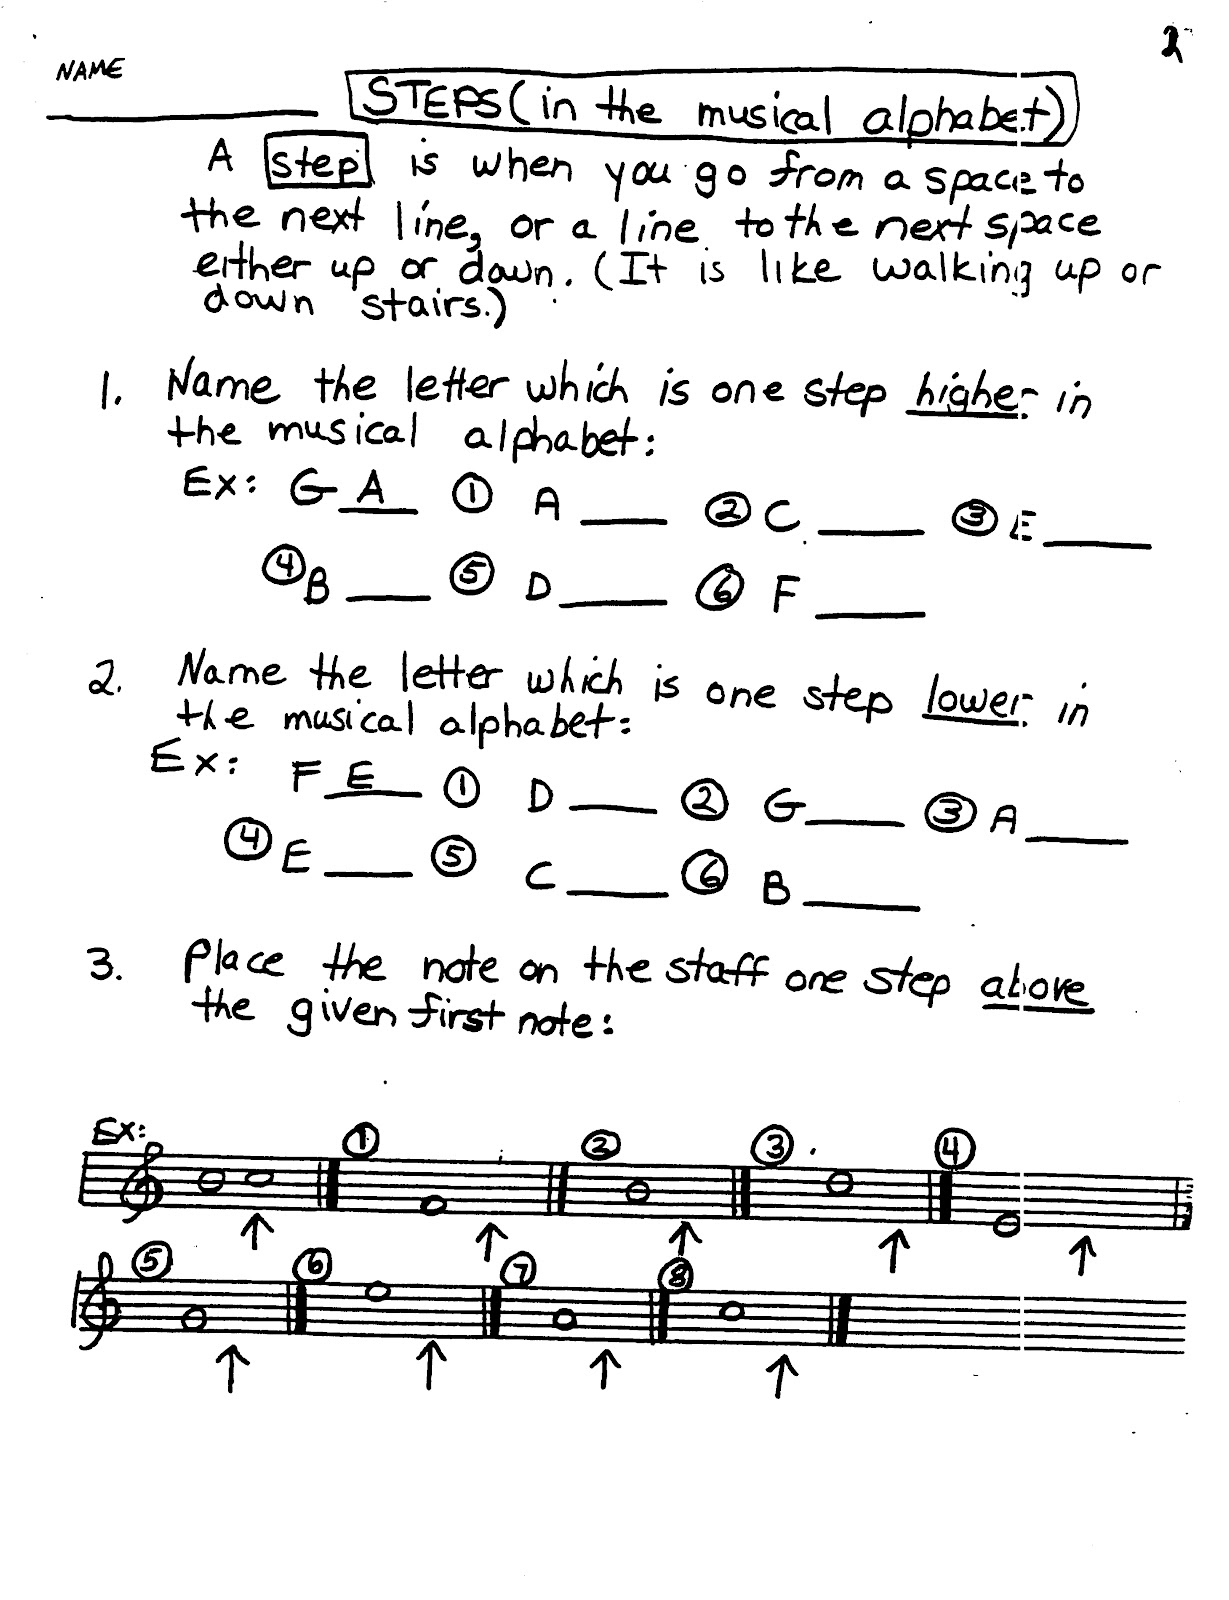 2
NAME
STEPS (in the musical alphabet)
A step is when you go from a space to
the next line, or a line to the next space
either up or down. (It is like walking up or
down stairs.)
1. Name the letter which is one step higher in
the musical alphabet:
Ex: G A ① A ___ ② C ___ ③ E ___
④ B ___ ⑤ D ___ ⑥ F ___
2. Name the letter which is one step lower in
the musical alphabet:
Ex: F E ① D ___ ② G ___ ③ A ___
④ E ___ ⑤ C ___ ⑥ B ___
3. Place the note on the staff one step above
the given first note:
Ex: ① ② ③ ④
⑤ ⑥ ⑦ ⑧